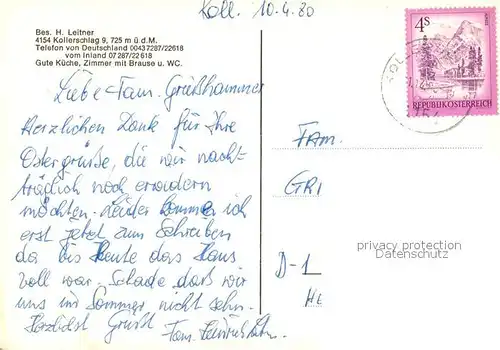 Koll. 10.4.80
Bes. H. Leitner
4154 Kollerschlag 9, 725 m ü.d.M.
Telefon von Deutschland 00437287/22618
vom Inland 07287/22618
Gute Küche, Zimmer mit Brause u. WC.
Liebe Fam.
Herzlichen Dank für Ihre
Ostergrüße, die wir nach-
träglich noch erwidern
möchten. Leider komme ich
erst jetzt zum Schreiben
da bis Heute das Haus
voll war. Schade daß wir
uns im Sommer nicht sehn.
Herzlichst Grüßt
Fam.
4S
REPUBLIK ÖSTERREICH
FAM.
GRI
D-1
HE
privacy protection
Datenschutz